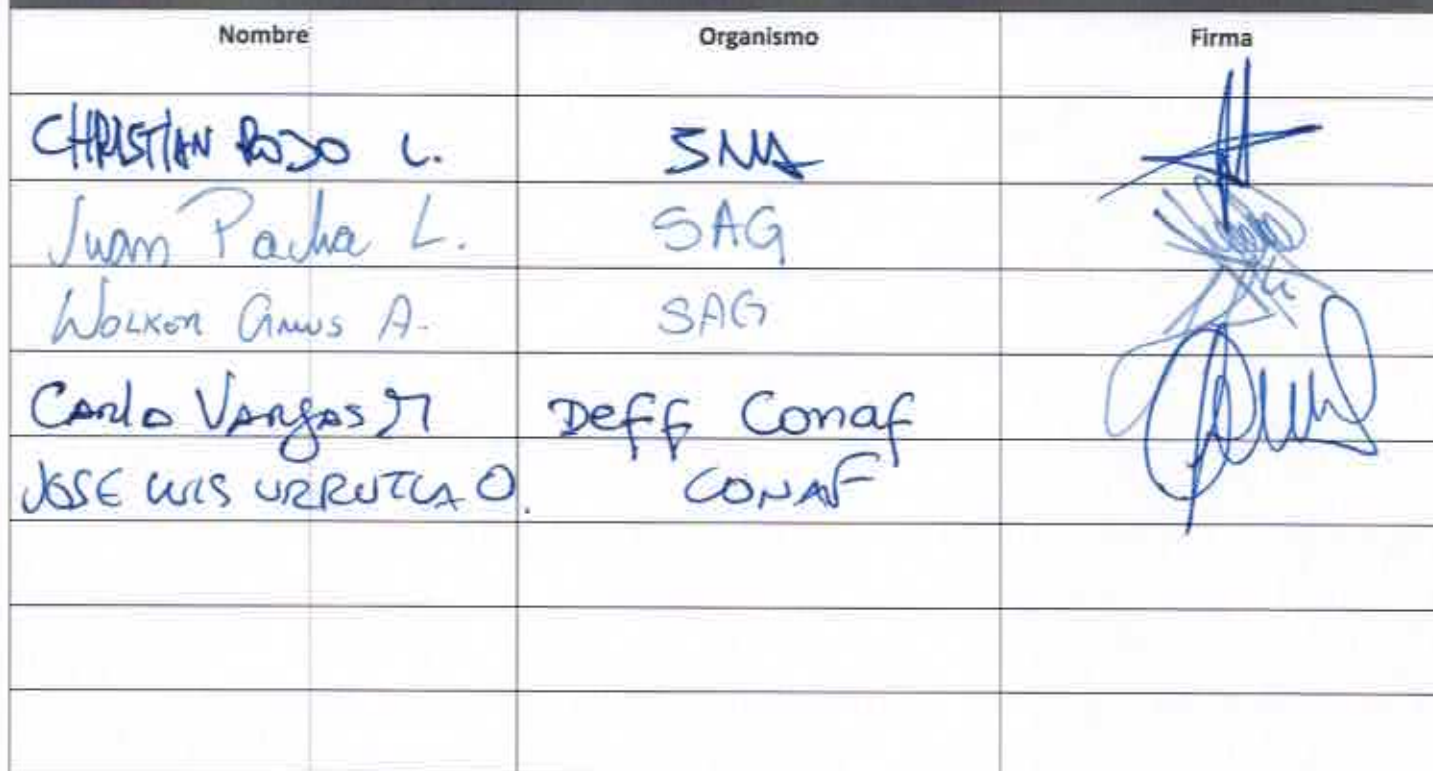 Nombre Organismo Firma
CHRISTIAN ROJO L. SMA
Juan Pacha L. SAG
A. SAG
Carlo Vargas M Deff Conaf
JOSE LUIS URRUTIA O. CONAF